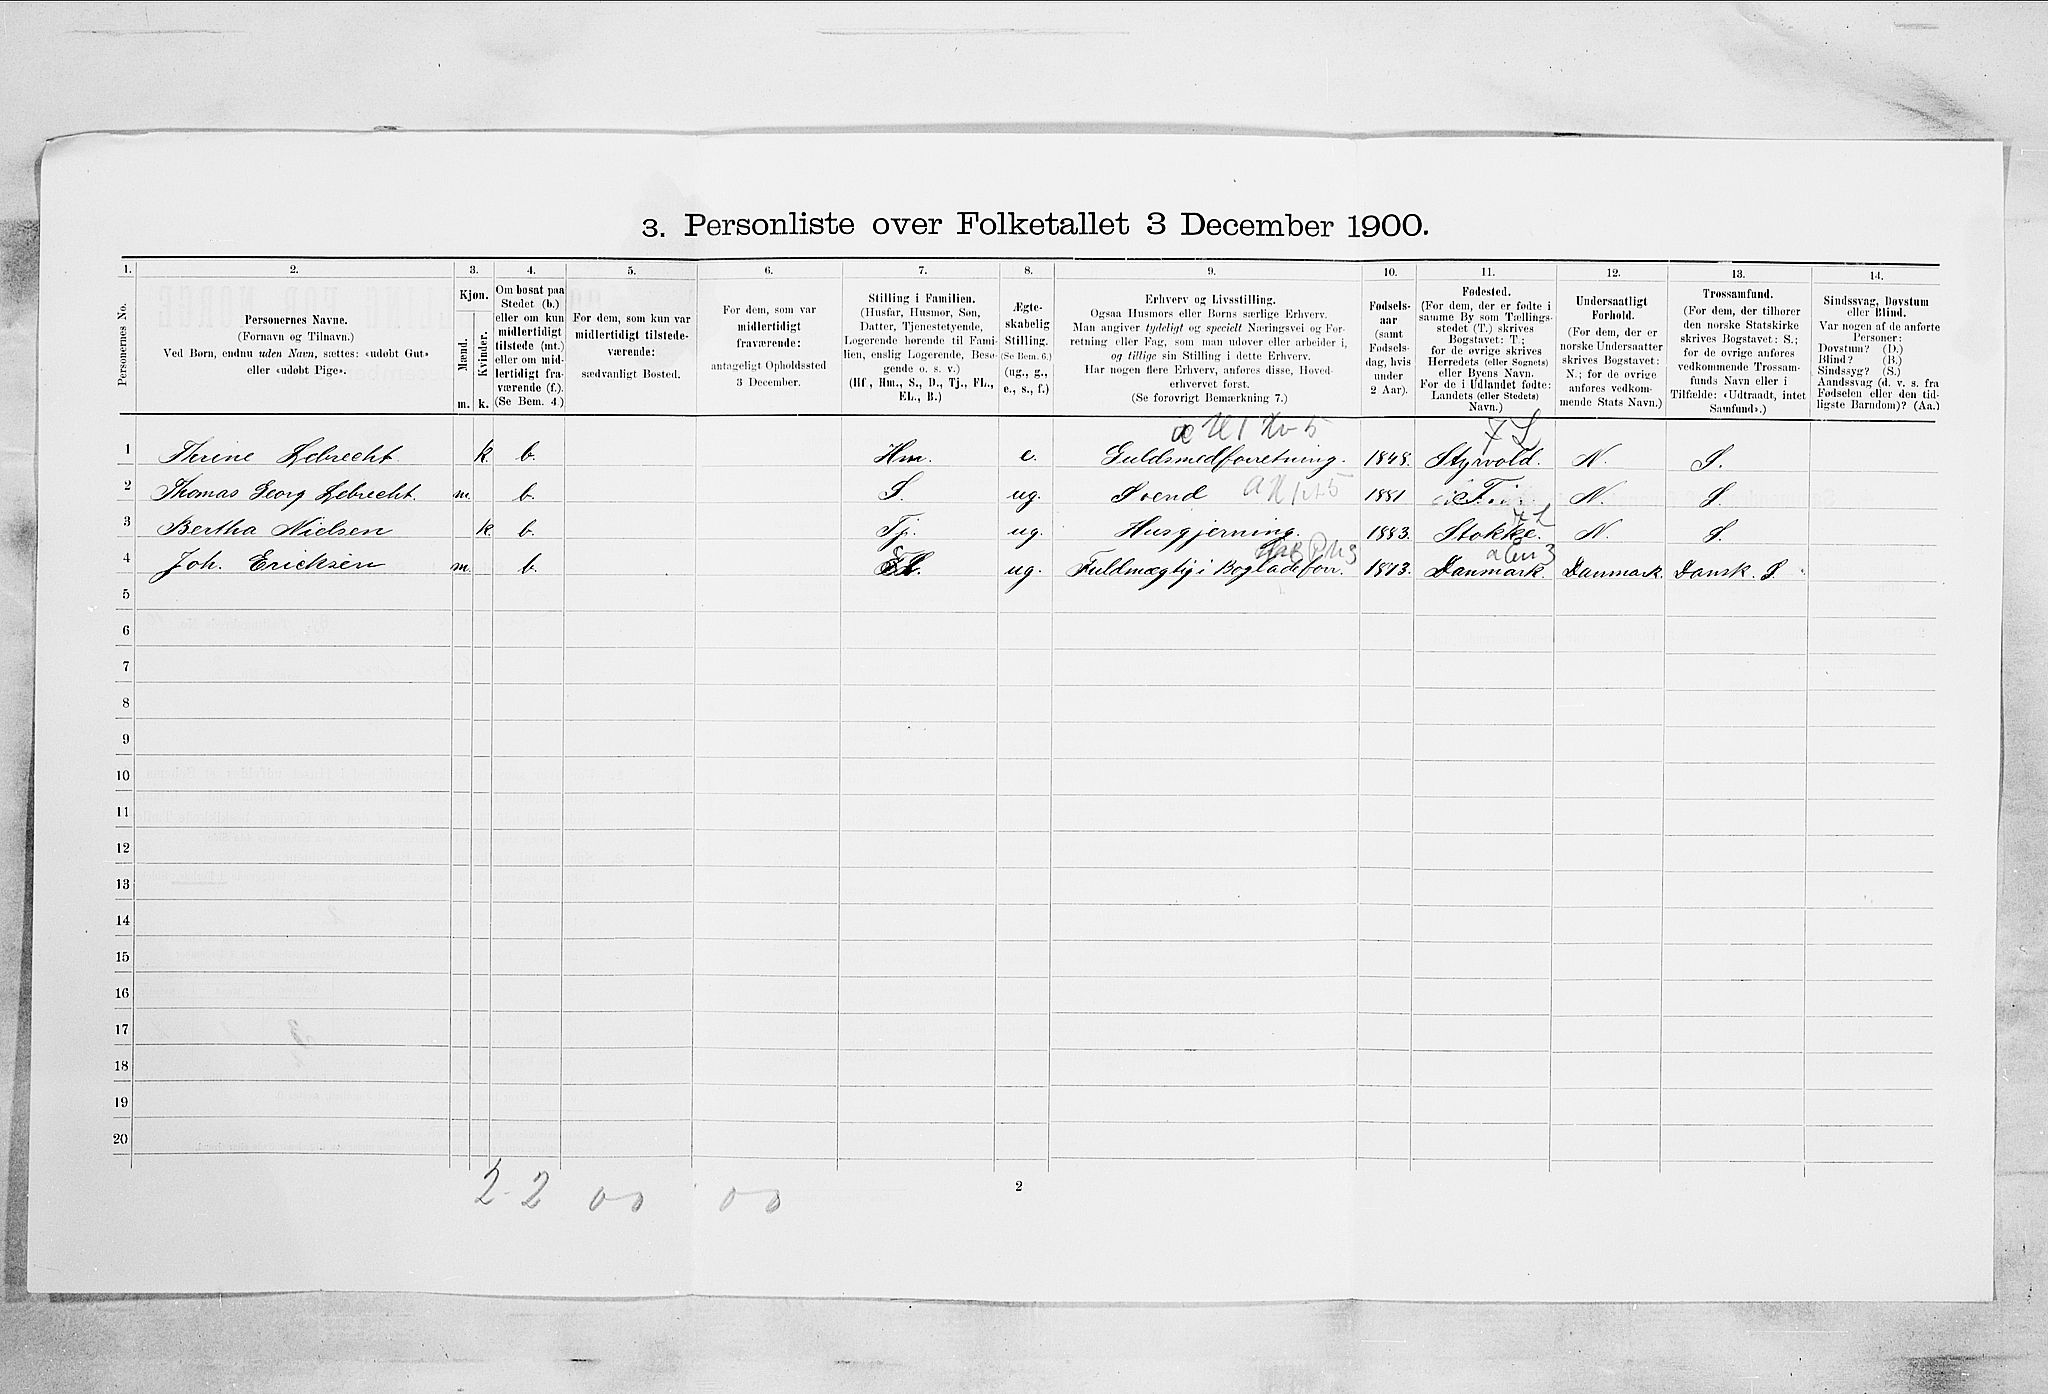 3. Personliste over Folketallet 3 December 1900.
1. 2. 3. 4. 5. 6. 7. 8. 9. 10. 11. 12. 13. 14.
Personernes No.
Personernes Navne.
(Fornavn og Tilnavn.)
Ved Børn, endnu uden Navn, sættes: «udøbt Gut»
eller «udøbt Pige».
Kjøn.
Mænd.
Kvinder.
m. k.
Om bosat paa
Stedet (b.)
eller om kun
midlertidigt
tilstede (mt.)
eller om mid-
lertidigt fra-
værende (f.).
(Se Bem. 4.)
For dem, som kun var
midlertidigt tilstede-
værende:
sædvanligt Bosted.
For dem, som var
midlertidigt
fraværende:
antageligt Opholdssted
3 December.
Stilling i Familien.
(Husfar, Husmor, Søn,
Datter, Tjenestetyende,
Logerende hørende til Fami-
lien, enslig Logerende, Besø-
gende o. s. v.)
(Hf., Hm., S., D., Tj., FL.,
EL., B.)
Ægte-
skabelig
Stilling.
(Se Bem. 6.)
(ug., g.,
e., s., f.)
Erhverv og Livsstilling.
Ogsaa Husmors eller Børns særlige Erhverv.
Man angiver tydeligt og specielt Næringsvei og For-
retning eller Fag, som man udøver eller arbeider i,
og tillige sin Stilling i dette Erhverv.
Har nogen flere Erhverv, anføres disse, Hoved-
erhvervet først.
(Se forøvrigt Bemærkning 7.)
Fødsels-
aar
(samt
Fødsels-
dag, hvis
under
2 Aar).
Fødested.
(For dem, der er fødte i
samme By som Tællings-
stedet (T.) skrives
Bogstavet: T.;
for de øvrige skrives
Herredets (eller Sognets)
eller Byens Navn.
For de i Udlandet fødte:
Landets (eller Stedets)
Navn.)
Undersaatligt
Forhold.
(For dem, der er
norske Undersaatter
skrives Bogstavet:
N.; for de øvrige
anføres vedkom-
mende Stats Navn.)
Trossamfund.
(For dem, der tilhører
den norske Statskirke
skrives Bogstavet: S.;
for de øvrige anføres
vedkommende Trossam-
funds Navn eller i
Tilfælde: «Udtraadt, intet
Samfund».)
Sindssvag, Døvstum
eller Blind.
Var nogen af de anførte
Personer:
Døvstum? (D.)
Blind? (B.)
Sindssyg? (S.)
Aandssvag (d. v. s. fra
Fødselen eller den tid-
ligste Barndom)? (Aa.)
1 Thrine Lebrecht. k. b. Hm. e. Guldsmedforretning. 1848. Styrvold. N. S.
2 Thomas Georg Lebrecht. m. b. S. ug. Svend 1881 T. N. S.
3 Bertha Nielsen k. b. Tj. ug. Husgjerning. 1883. Stokke. N. S.
4 Joh. Ericksen m. b. ug. Fuldmægtig i Bogladeforr. 1873. Danmark. Danmark. Dansk. S.
5
6
7
8
9
10
11
12
13
14
15
16
17
18
19
20
2 2 00 00
2